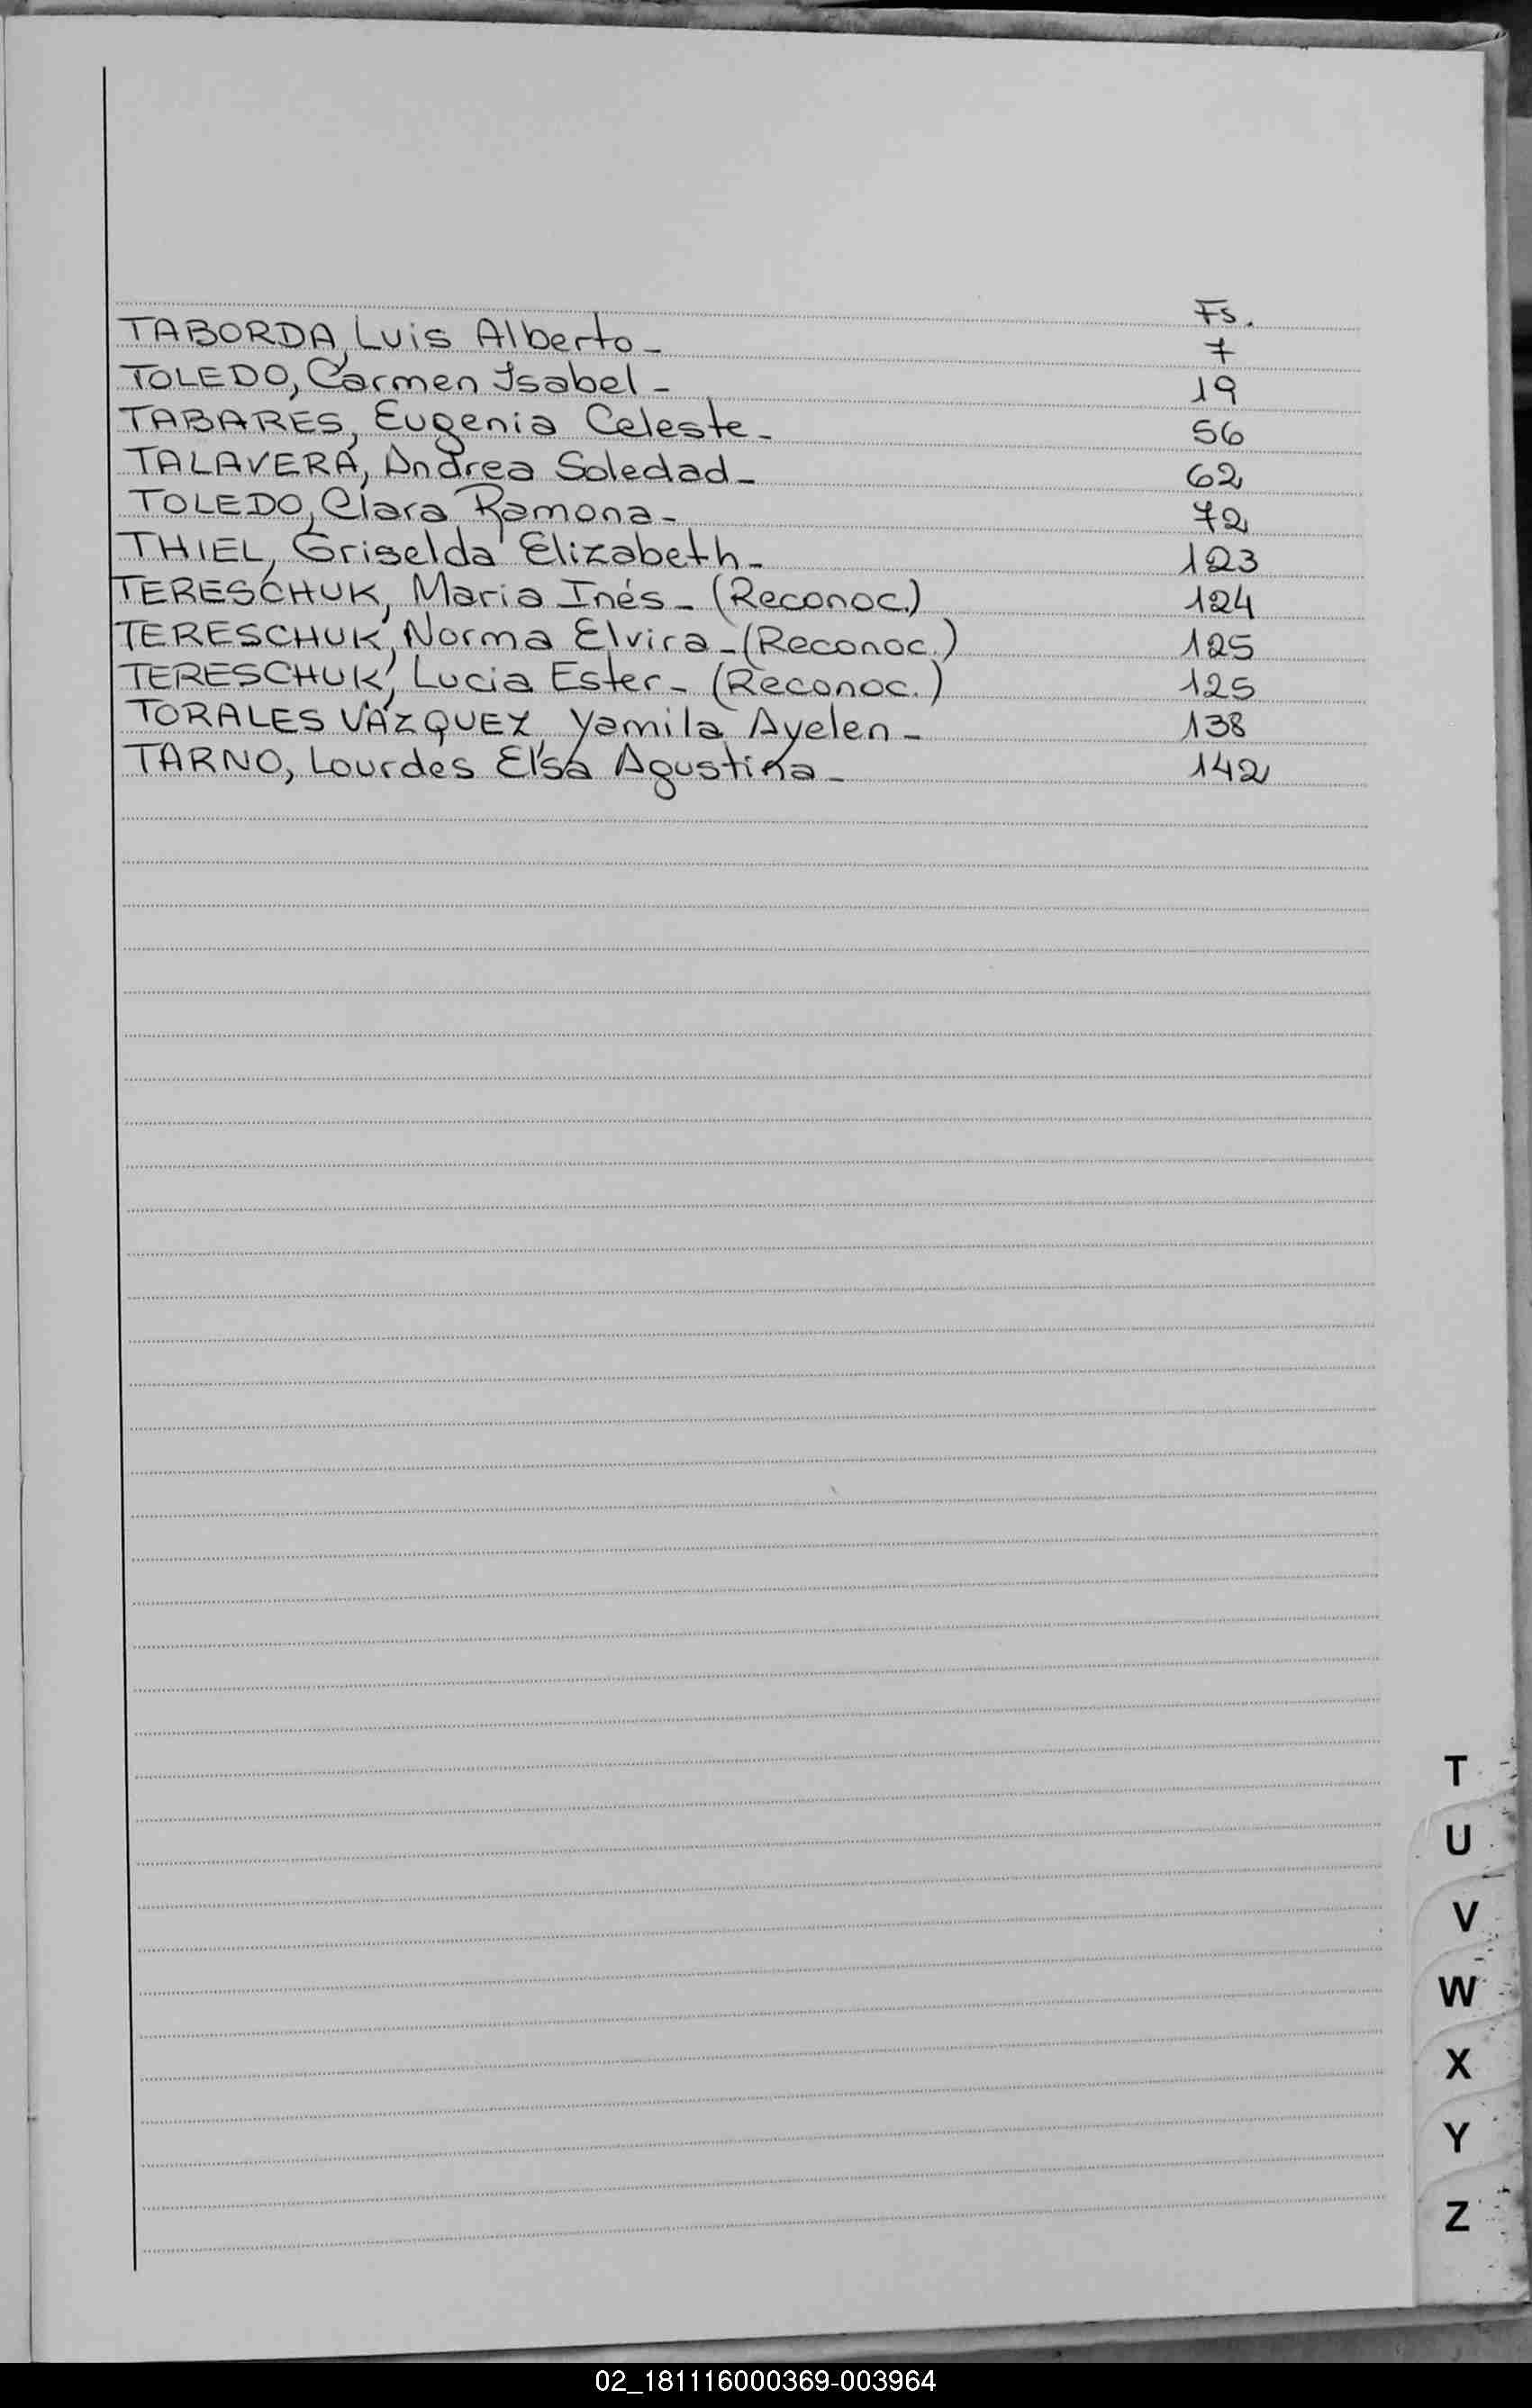 Fs.
TABORDA, Luis Alberto- 7
TOLEDO, Carmen Isabel- 19
TABARES, Eugenia Celeste- 56
TALAVERA, Andrea Soledad- 62
TOLEDO, Clara Ramona- 72
THIEL, Griselda Elizabeth- 123
TERESCHUK, Maria Inés- (Reconoc.) 124
TERESCHUK, Norma Elvira-(Reconoc.) 125
TERESCHUK, Lucia Ester- (Reconoc.) 125
TORALES VÁZQUEZ, Yamila Ayelen- 138
TARNO, Lourdes Elsa Agustina- 142
T
U
V
W
X
Y
Z
02_181116000369-003964